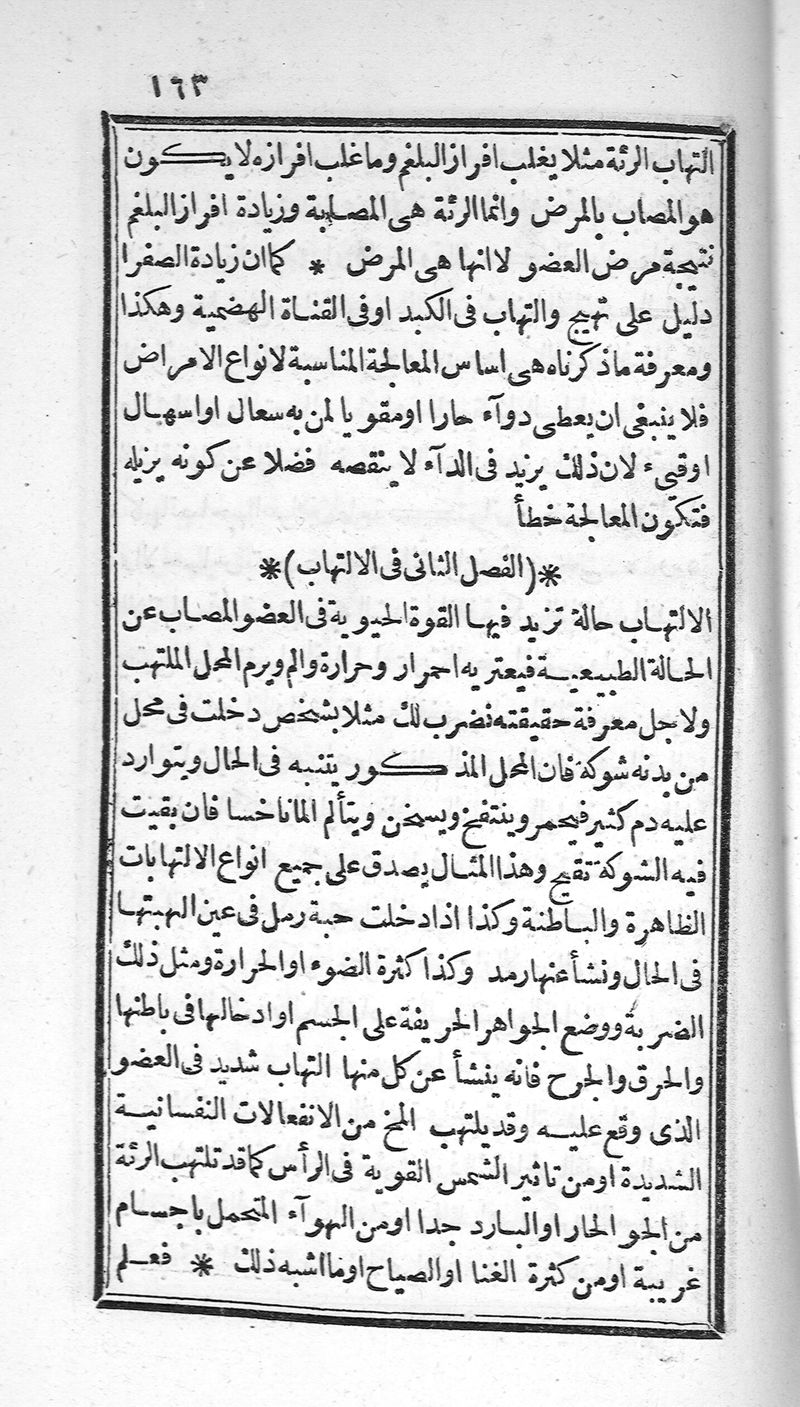 ١٦٣
التهاب الرئة مثلا يغلب افراز البلغم وما غلب افرازه لا يكون
هو المصاب بالمرض وانما الرئة هى المصابة وزيادة افراز البلغم
نتيجة مرض العضو لا انها هى المرض * كما ان زيادة الصفرا
دليل على تهيج والتهاب فى الكبد او فى القناة الهضمية وهكذا
ومعرفة ما ذكرناه هى اساس المعالجة المناسبة لانواع الامراض
فلا ينبغى ان يعطى دوآء حارا او مقويا لمن به سعال او اسهال
او قىء لان ذلك يزيد فى الدآء لا ينقصه فضلا عن كونه يزيله
فتكون المعالجة خطأ
*(الفصل الثانى فى الالتهاب)*
الالتهاب حالة تزيد فيها القوة الحيوية فى العضو المصاب عن
الحالة الطبيعية فيعتريه احمرار وحرارة والم ويرم المحل الملتهب
ولاجل معرفة حقيقته نضرب لك مثلا بشخص دخلت فى محل
من بدنه شوكة فان المحل المذكور يتنبه فى الحال ويتوارد
عليه دم كثير فيحمر وينتفخ ويسخن ويتألم الما ناخسا فان بقيت
فيه الشوكة تقيح وهذا المثال يصدق على جميع انواع الالتهابات
الظاهرة والباطنة وكذا اذا دخلت حبة رمل فى عين الهبتها
فى الحال ونشأ عنها رمد وكذا كثرة الضوء او الحرارة ومثل ذلك
الضربة ووضع الجواهر الحريفة على الجسم او ادخالها فى باطنها
والحرق والجرح فانه ينشأ عن كل منها التهاب شديد فى العضو
الذى وقع عليه وقد يلتهب المخ من الانفعالات النفسانية
الشديدة او من تاثير الشمس القوية فى الرأس كما قد تلتهب الرئة
من الجو الحار او البارد جدا او من الهوآء المتحمل باجسام
غريبة او من كثرة الغنا او الصياح او ما اشبه ذلك * فعلم